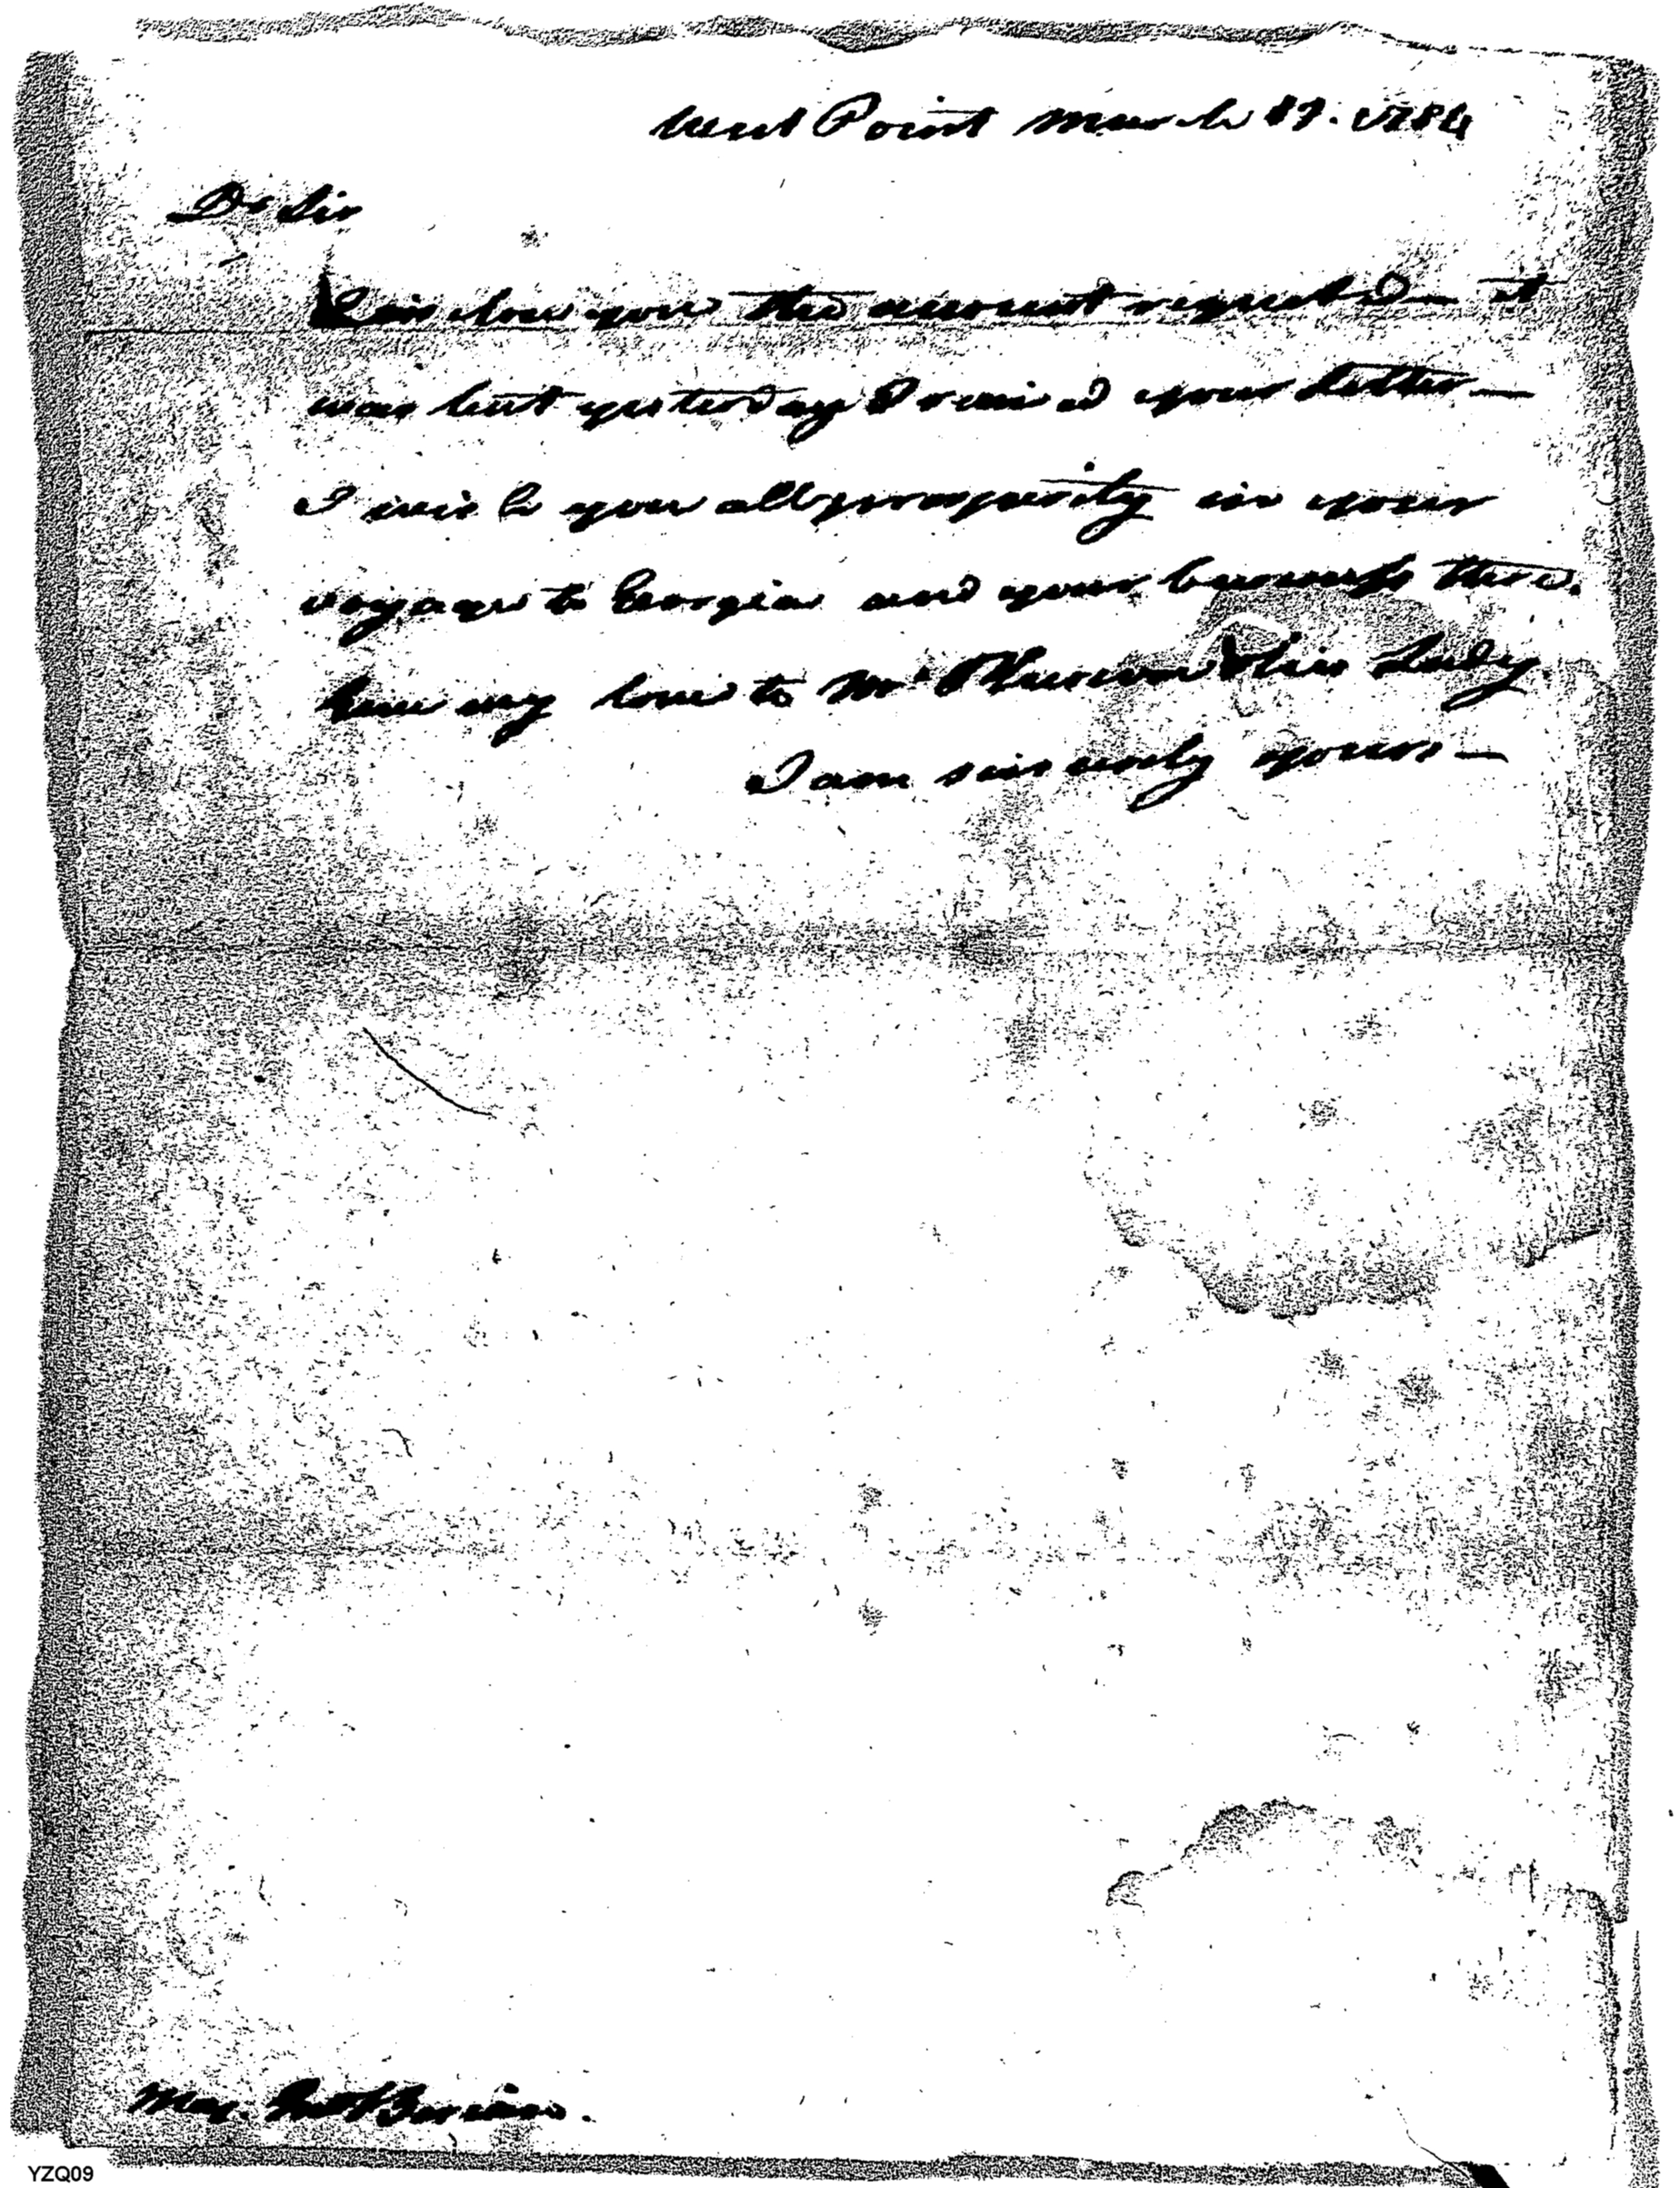 West Point March 17. 1784
Dr Sir
I inclose you the account requested — it
was but yesterday I received your letter —
I wish you all prosperity in your
voyage to Georgia and your business there.
Give my love to Mr & his Lady
I am sincerely yours —
Maj. Berrien.
YZQ09